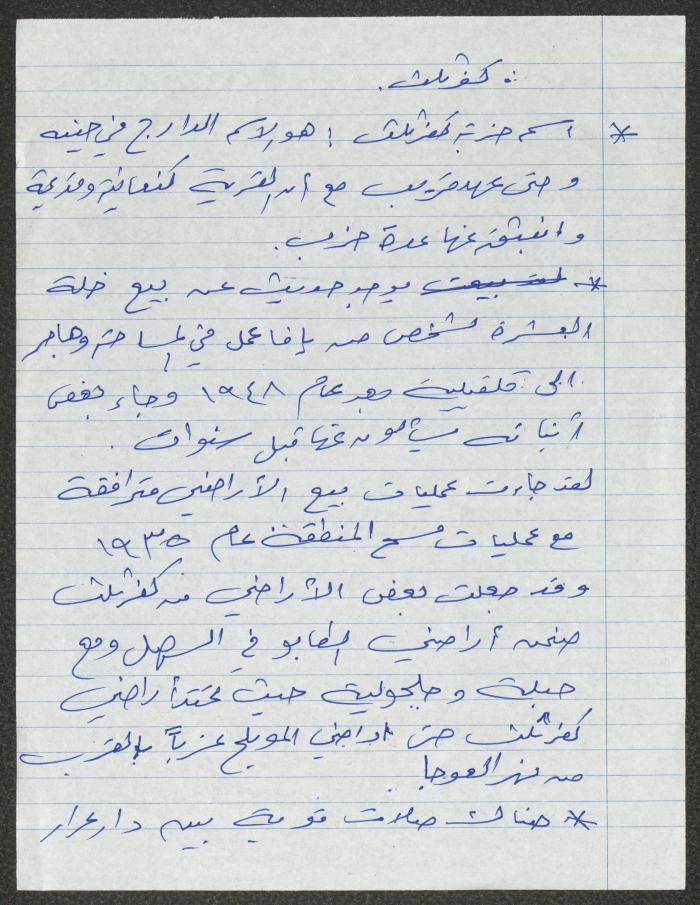 : كفر ثلث.
* اسم خربة كفر ثلث : هو الاسم الدارج في حينه
وحتى عهد قريب مع أن القرية كنعانية وقديمة
وانبثق عنها عدة خرب.
* لقد بيعت يوجد حديث عن بيع خلة
البشرة لشخص من يافا عمل في المساحة وهاجر
الى قلقيلية بعد عام ١٩٤٨ وجاء بعض
أبنائه يسألون عنها قبل سنوات .
لقد جاءت عمليات بيع الأراضي مترافقة
مع عمليات مسح المنطقة عام ١٩٣٥
وقد جعلت بعض الأراضي من كفر ثلث
ضمن أراضي الطابو في السهل ومع
حبلة وجلجولية حيث تمتد أراضي
كفر ثلث حتى اراضي المويلح غرباً بالقرب
من نهر العوجا
* هناك صلات قوية بين دار عرار